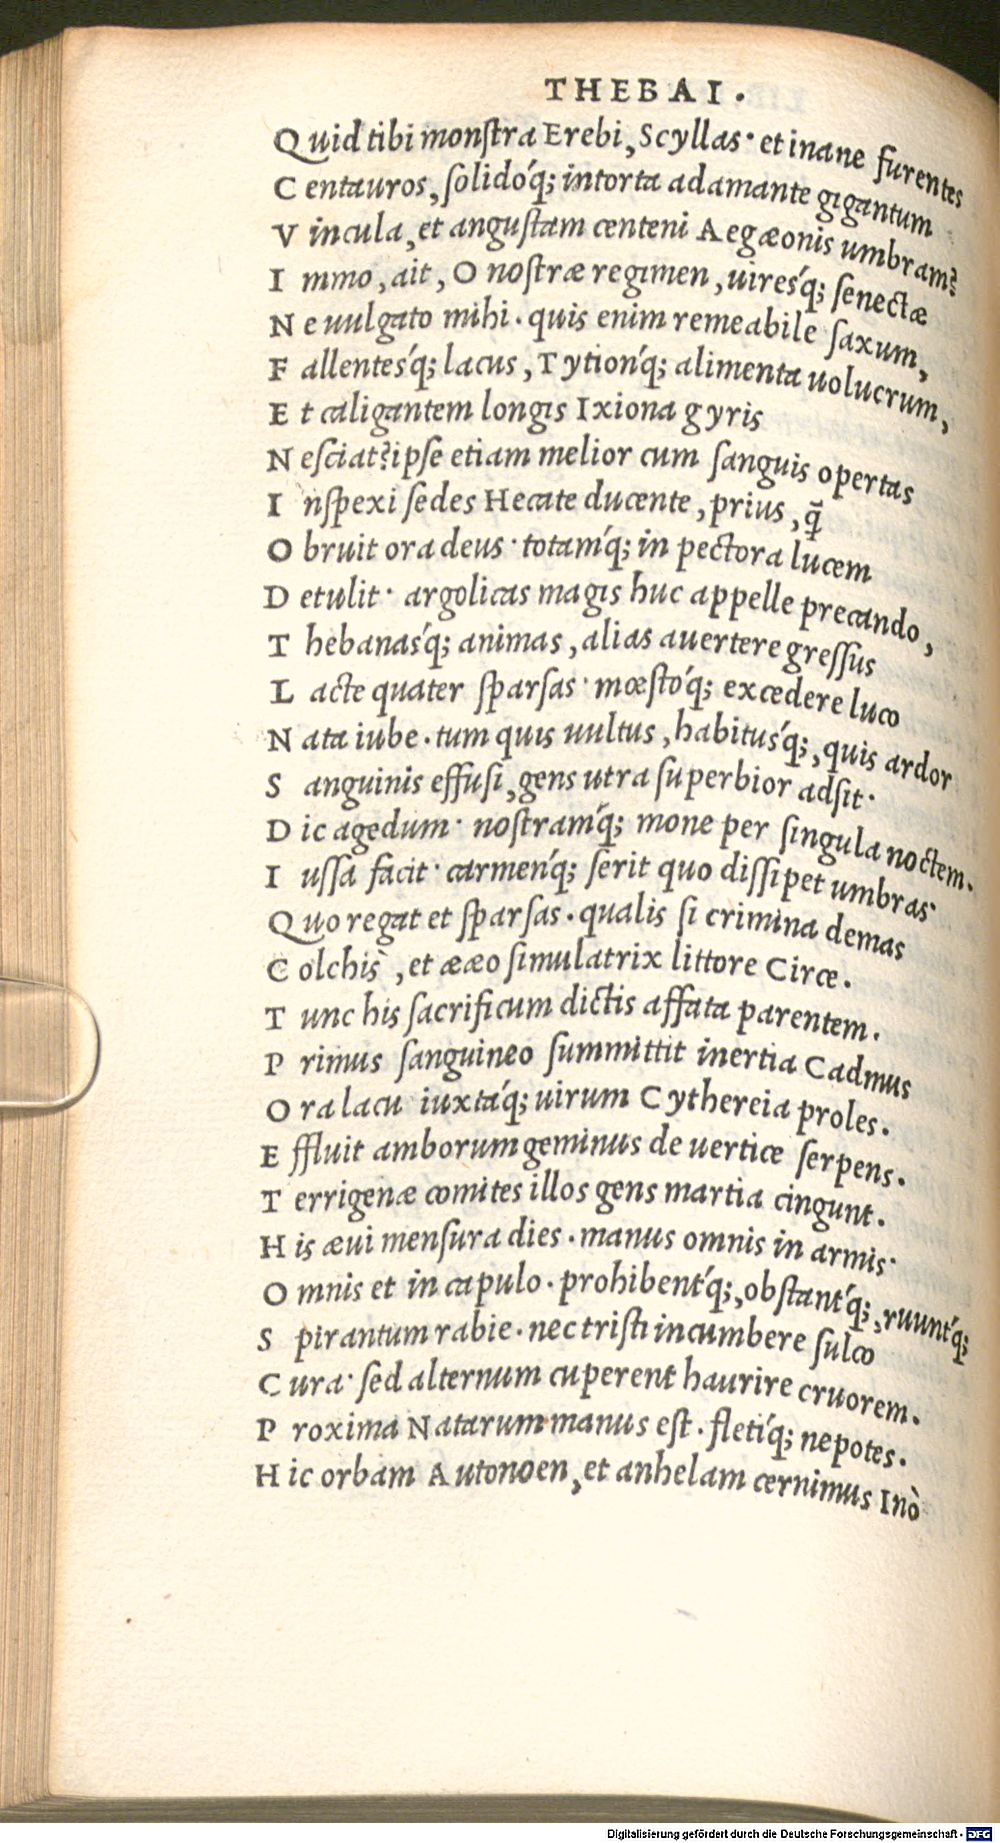 THEBAI.
Quid tibi monſtra Erebi, Scyllas· et inane furentes
Centauros, ſolidóq́; intorta adamante gigantum
Vincula, et anguſtam centeni Aegæonis umbram?
Immo, ait, O noſtræ regimen, uiresq́; ſenectæ
Ne uulgato mihi. quis enim remeabile ſaxum,
Fallentesq́; lacus, Tytionq́; alimenta uolucrum,
Et caligantem longis Ixiona gyris
Neſciat? ipſe etiam melior cum ſanguis opertas
Inſpexi ſedes Hecate ducente, prius, q̃
Obruit ora deus· totamq́; in pectora lucem
Detulit· argolicas magis huc appelle precando,
Thebanasq́; animas, alias auertere greſſus
Lacte quater ſparſas· mœſtóq́; excedere luco
Nata iube. tum quis uultus, habitusq́;, quis ardor
Sanguinis effuſi, gens utra ſuperbior adſit·
Dic agedum· noſtramq́; mone per ſingula noctem.
Iuſſa facit· carmenq́; ſerit quo diſſipet umbras·
Quo regat et ſparſas. qualis ſi crimina demas
Colchis`, et ææo ſimulatrix littore Circe.
Tunc his ſacrificum dictis affata parentem.
Primus ſanguineo ſummittit inertia Cadmus
Ora lacu iuxtáq́; uirum Cythereia proles.
Effluit amborum geminus de uertice ſerpens.
Terrigenæ comites illos gens martia cingunt.
His æui menſura dies. manus omnis in armis·
Omnis et in capulo. prohibentq́;, obſtantq́;, ruuntq́;
Spirantum rabie. nec triſti incumbere ſulco
Cura· ſed alternum cuperent haurire cruorem.
Proxima Natarum manus eſt. fletiq́; nepotes.
Hic orbam Autonoen, et anhelam cernimus Inò
Digitalisierung gefördert durch die Deutsche Forschungsgemeinschaft - DFG